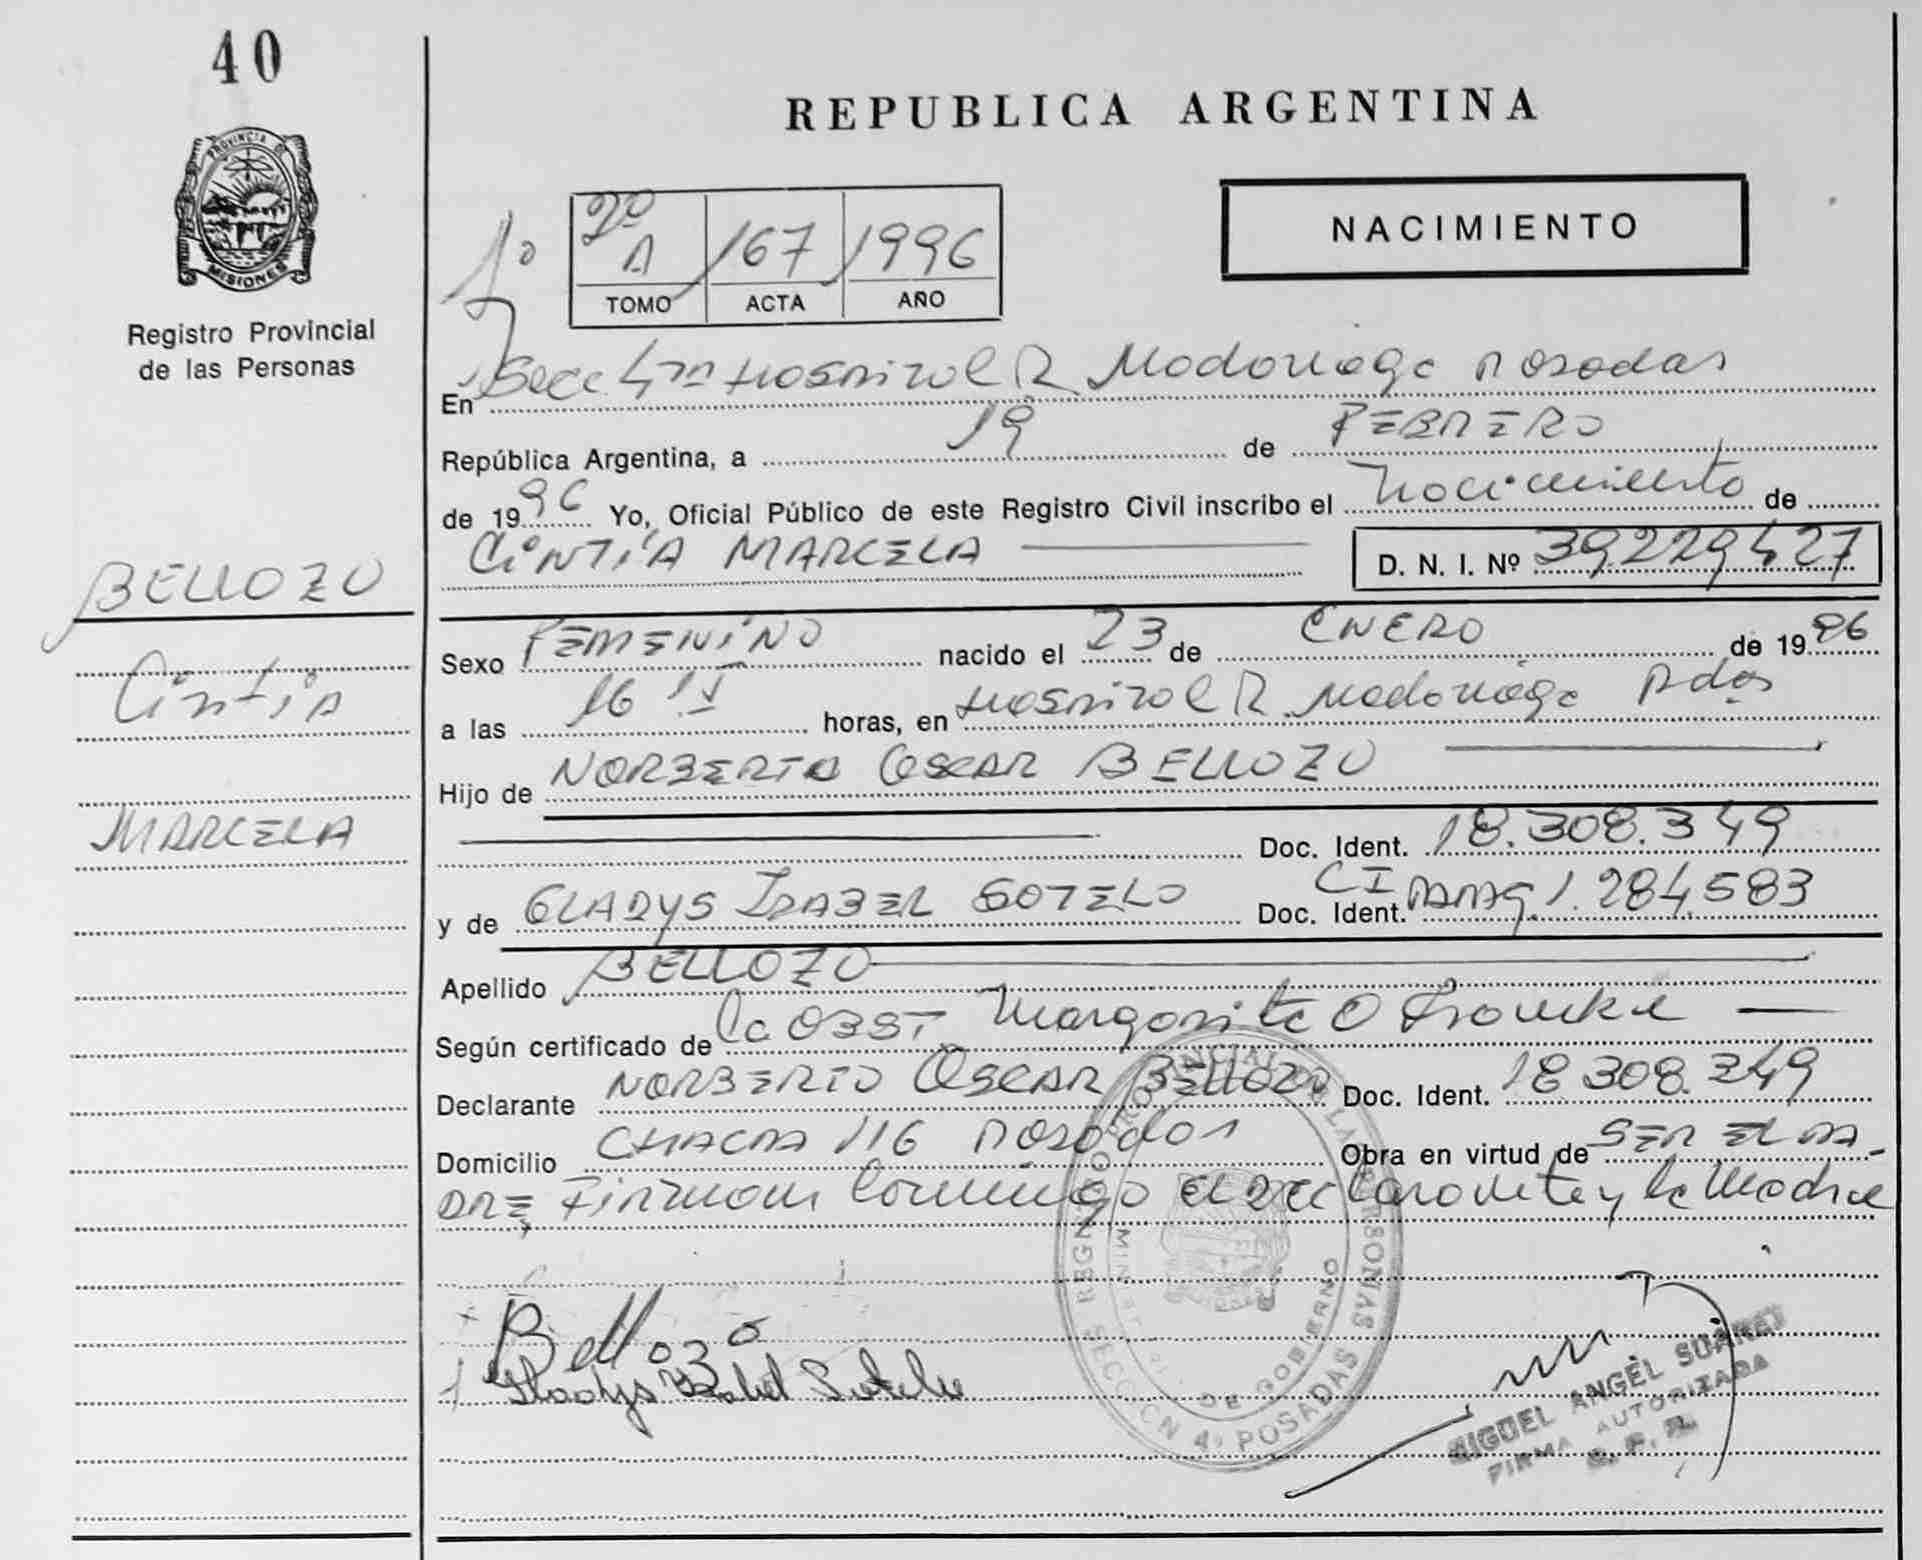 40
PROVINCIA DE
MISIONES
Registro Provincial
de las Personas
REPUBLICA ARGENTINA
NACIMIENTO
1º
2º
A 167 1996
TOMO ACTA AÑO
En Secc 4ta Hospital R Madariaga Posadas
República Argentina, a 19 de FEBRERO
de 1996 Yo, Oficial Público de este Registro Civil inscribo el Nacimiento de
CINTIA MARCELA D. N. I. Nº 39.229.427
BELLOZO
Cintia
MARCELA
Sexo FEMENINO nacido el 23 de ENERO de 1996
a las 16 15 horas, en Hospital R. Madariaga Pdas
Hijo de NORBERTO OSCAR BELLOZO
Doc. Ident. 18.308.349
y de GLADYS ISABEL SOTELO Doc. Ident. CI 1.284.583
Apellido BELLOZO
Según certificado de la OBST. Margarita O
Declarante NORBERTO OSCAR BELLOZO Doc. Ident. 18 308.349
Domicilio CHACRA 116 Posadas Obra en virtud de SER EL PA-
DRE, Firman Conmigo el declarante y la Madre
REGISTRO PROVINCIAL DE LAS PERSONAS
MINISTERIO DE GOBIERNO
SECCION 4ª POSADAS
Bellozo
Gladys Isabel Sotelo
MIGUEL ANGEL SUAREZ
FIRMA AUTORIZADA